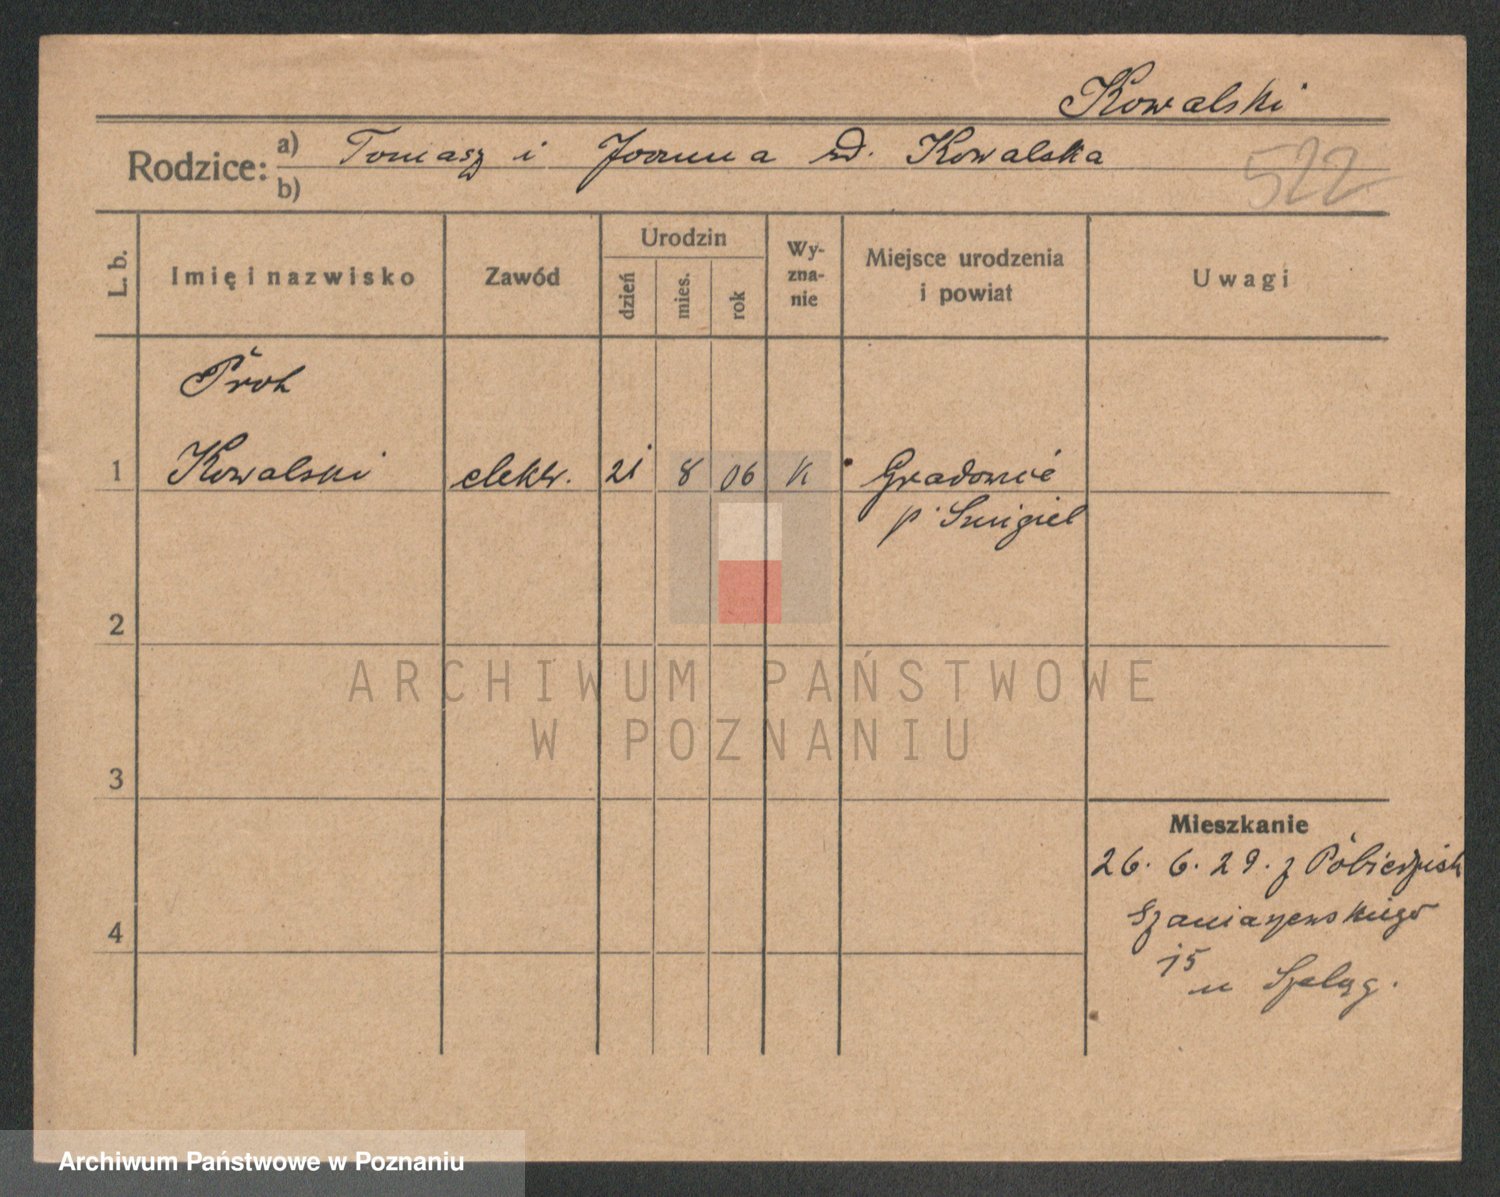 Kowalski
Rodzice: a) Tomasz i Joanna zd. Kowalska
b)
522
L. b.
Imię i nazwisko
Zawód
Urodzin
dzień
mies.
rok
Wy-
zna-
nie
Miejsce urodzenia
i powiat
Uwagi
Piotr
1 Kowalski elektr. 21 8 06 K Gradowice
p. Śmigiel
2
3
4
Mieszkanie
26. 6. 29. z Pobiedzisk
Szaniawskiego
15
u Szeląg.
ARCHIWUM PAŃSTWOWE
W POZNANIU
Archiwum Państwowe w Poznaniu